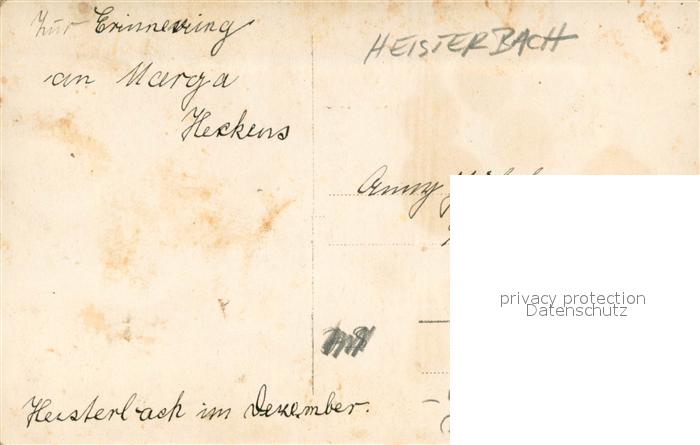 Zur Erinnering
an Marga
Heckens
HEISTERBACH
Anny
privacy protection
Datenschutz
Heisterbach im Dezember.